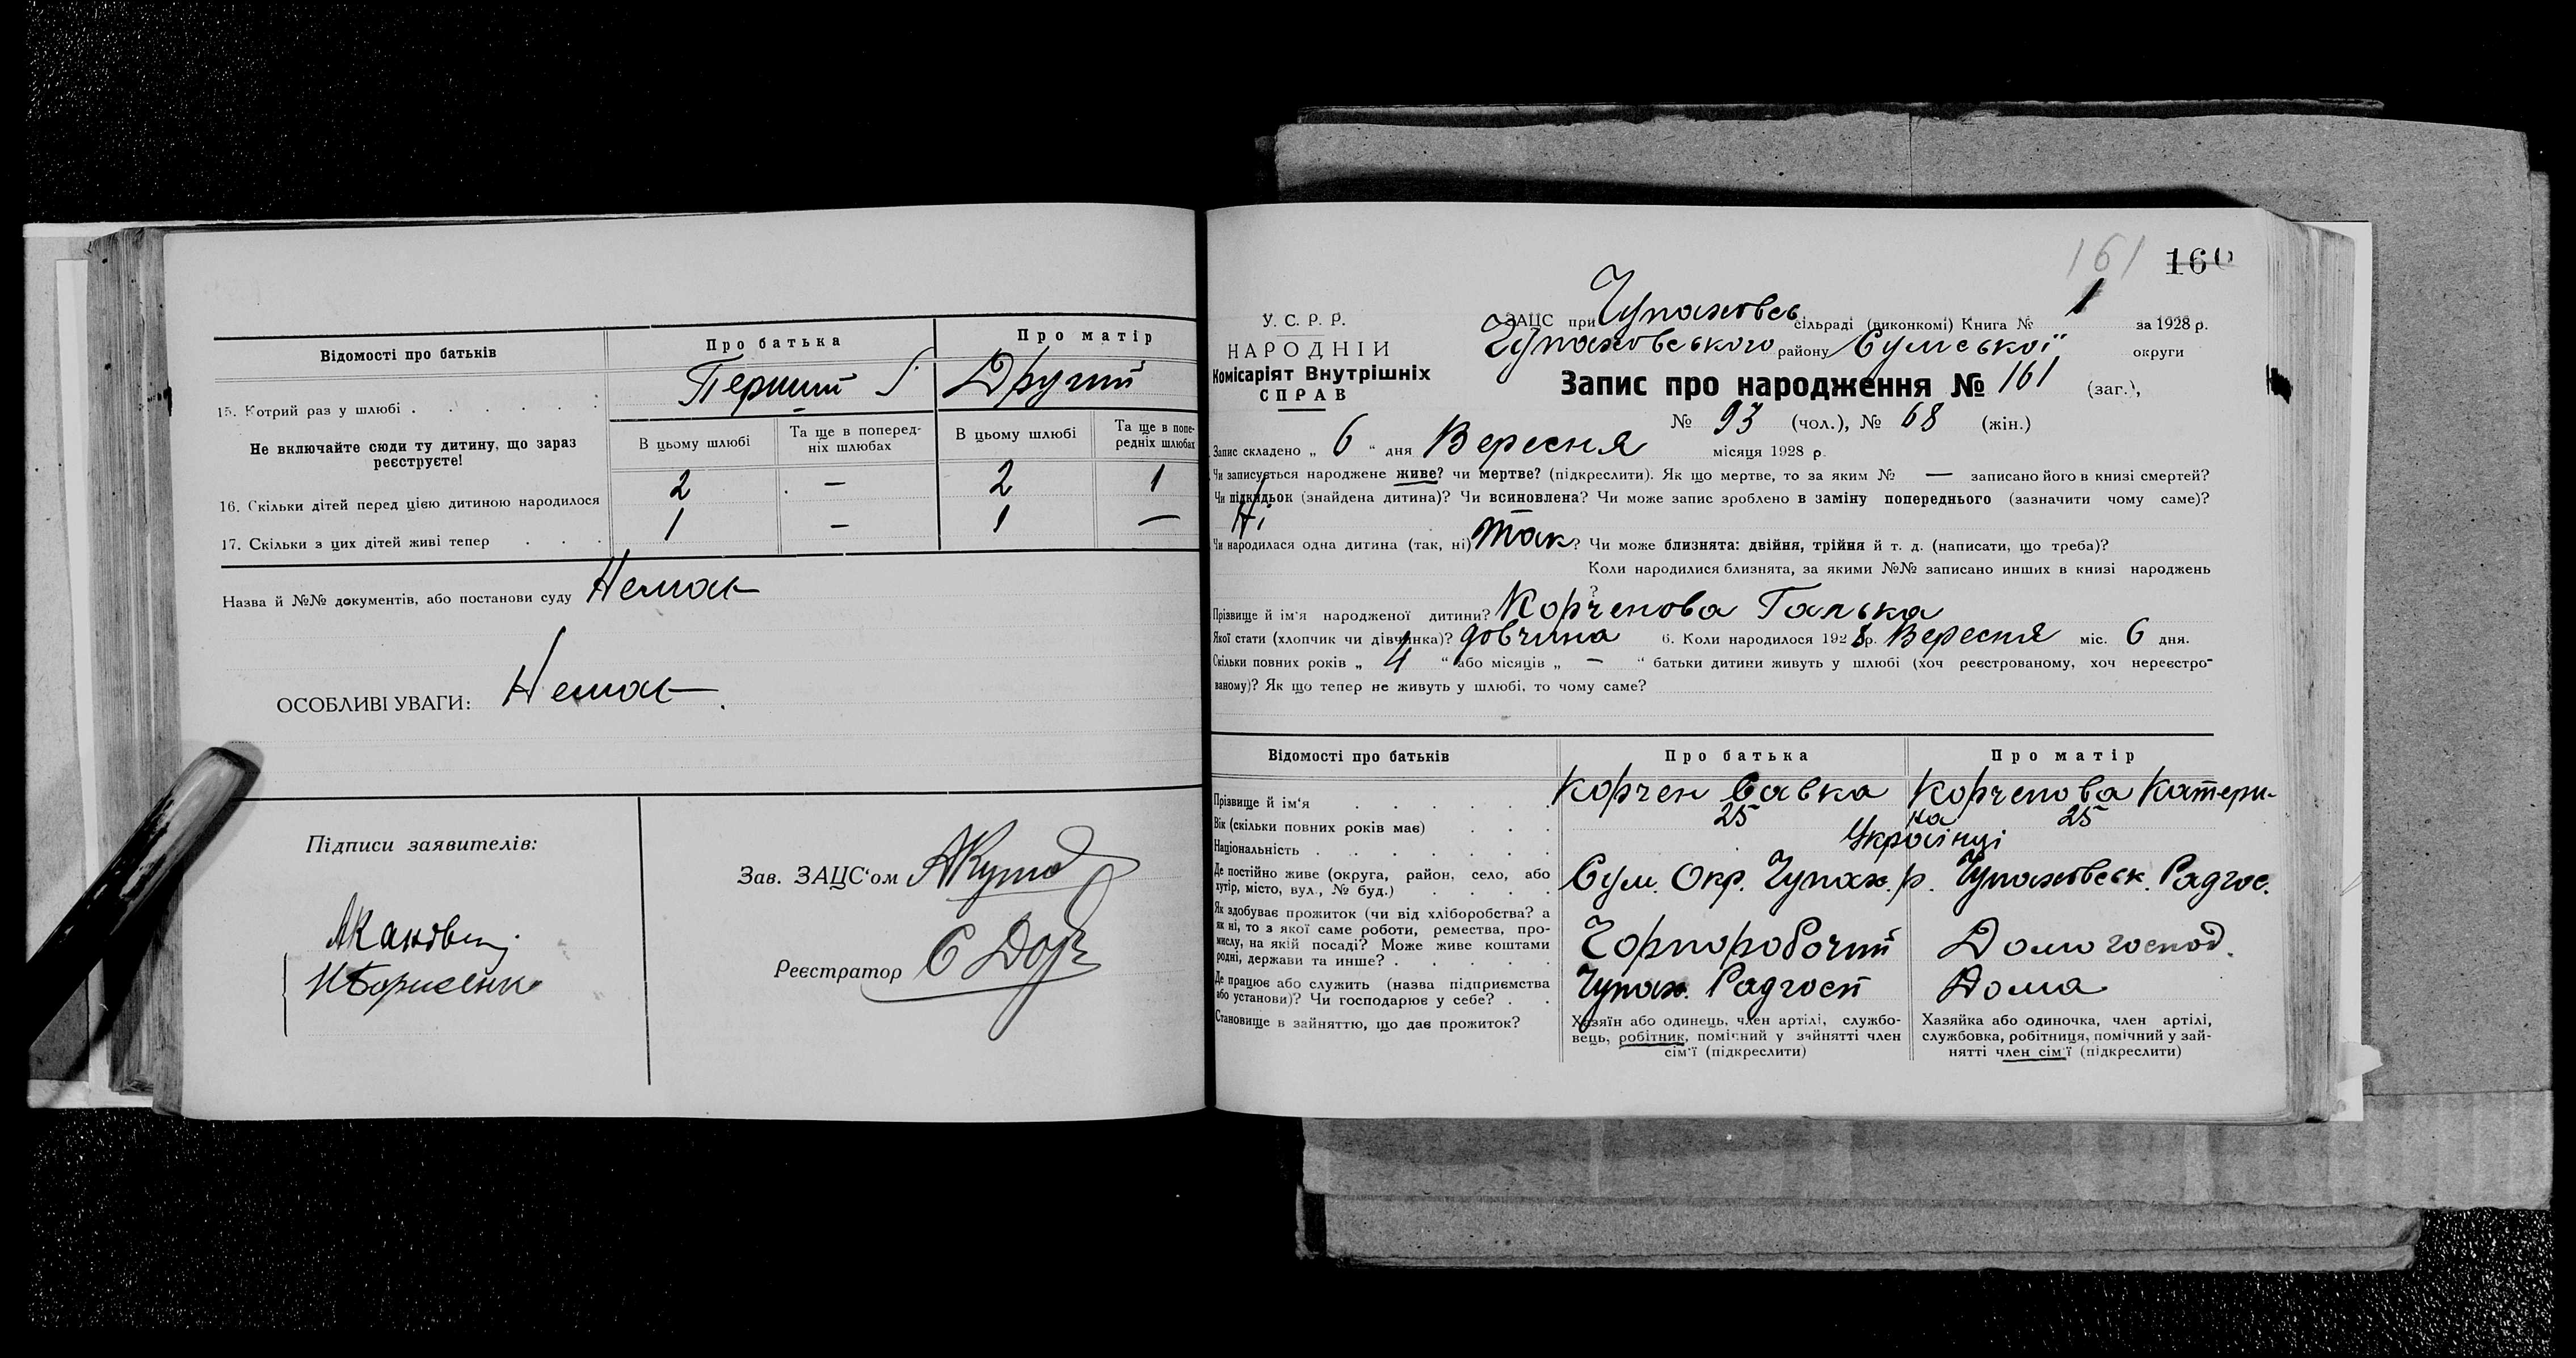 Відомості про батьків
Про батька
Про матір
15. Котрий раз у шлюбі . . . . . .
Перший
Другий
Не включайте сюди ту дитину, що зараз реєструєте!
В цьому шлюбі
Та ще в попередніх шлюбах
В цьому шлюбі
Та ще в попередніх шлюбах
16. Скільки дітей перед цією дитиною народилося
2 — 2 1
17. Скільки з цих дітей живі тепер . . .
1 — 1 —
Назва й №№ документів, або постанови суду Немає
ОСОБЛИВІ УВАГИ: Немає.
Підписи заявителів:
Зав. ЗАЦС'ом
Реєстратор
161 160
У. С. Р. Р.
НАРОДНІЙ
Комісаріят Внутрішніх
СПРАВ
ЗАЦС при Чупаховсь сільраді (виконкомі) Книга № 1 за 1928 р.
Чупаховського району Сумської округи
Запис про народження № 161 (заг.),
№ 93 (чол.), № 68 (жін.)
Запис складено „ 6 " дня Вересня місяця 1928 р.
Чи записується народжене живе? чи мертве? (підкреслити). Як що мертве, то за яким № — записано його в книзі смертей?
Чи підкидьок (знайдена дитина)? Чи всиновлена? Чи може запис зроблено в заміну попереднього (зазначити чому саме)?
Ні
Чи народилася одна дитина (так, ні) Так? Чи може близнята: двійня, трійня й т. д. (написати, що треба)?
Коли народилися близнята, за якими №№ записано инших в книзі народжень
?
Прізвище й ім'я народженої дитини? Корченова Галька
Якої стати (хлопчик чи дівчинка)? довчина 6. Коли народилося 1928 р. Вересня міс. 6 дня.
Скільки повних років „ 4 " або місяців „ — " батьки дитини живуть у шлюбі (хоч реєстрованому, хоч нереєстро-
ваному)? Як що тепер не живуть у шлюбі, то чому саме?
Відомості про батьків
Про батька
Про матір
Прізвище й ім'я . . . . .
Корчен Савка
Корченова Катери-
на
Вік (скільки повних років має) . . .
25
25
Національність . . . . . . .
Українці
Де постійно живе (округа, район, село, або
хутір, місто, вул., № буд.) . . . .
Сум. Окр. Чупах. р. Чупаховськ. Радгос.
Як здобуває прожиток (чи від хліборобства? а
як ні, то з якої саме роботи, ремества, про-
мислу, на якій посаді? Може живе коштами
родні, держави та инше? . . . . .
Чорноробочий
Домогоспод.
Де працює або служить (назва підприємства
або установи)? Чи господарює у себе? . .
Чупах. Радгосп
Дома
Становище в зайняттю, що дає прожиток?
Хазяїн або одинець, член артілі, службо-
вець, робітник, помічний у зайнятті член
сім'ї (підкреслити)
Хазяйка або одиночка, член артілі,
службовка, робітниця, помічний у зай-
нятті член сім'ї (підкреслити)